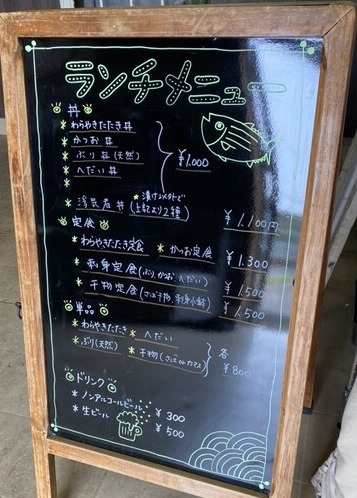 ランチメニュー
丼
* わらやきたたき丼
* かつお丼
* ぶり丼(天然)
* へだい丼
¥1.000
*
* 漬け〆外で
* 漁民者丼(上記より2種) ¥1.100円
定食
* わらやきたたき定食 * かつお定食 ¥1.300
* 刺身定食(ぶり、かつお、へだい) ¥1.500
* 干物定食(さば干物、刺身小鉢) ¥1.500
単品
* わらやきたたき * へだい
* ぶり(天然) * 干物(さば or カマス)
各 ¥800
ドリンク
* ノンアルコールビール ¥300
* 生ビール ¥500